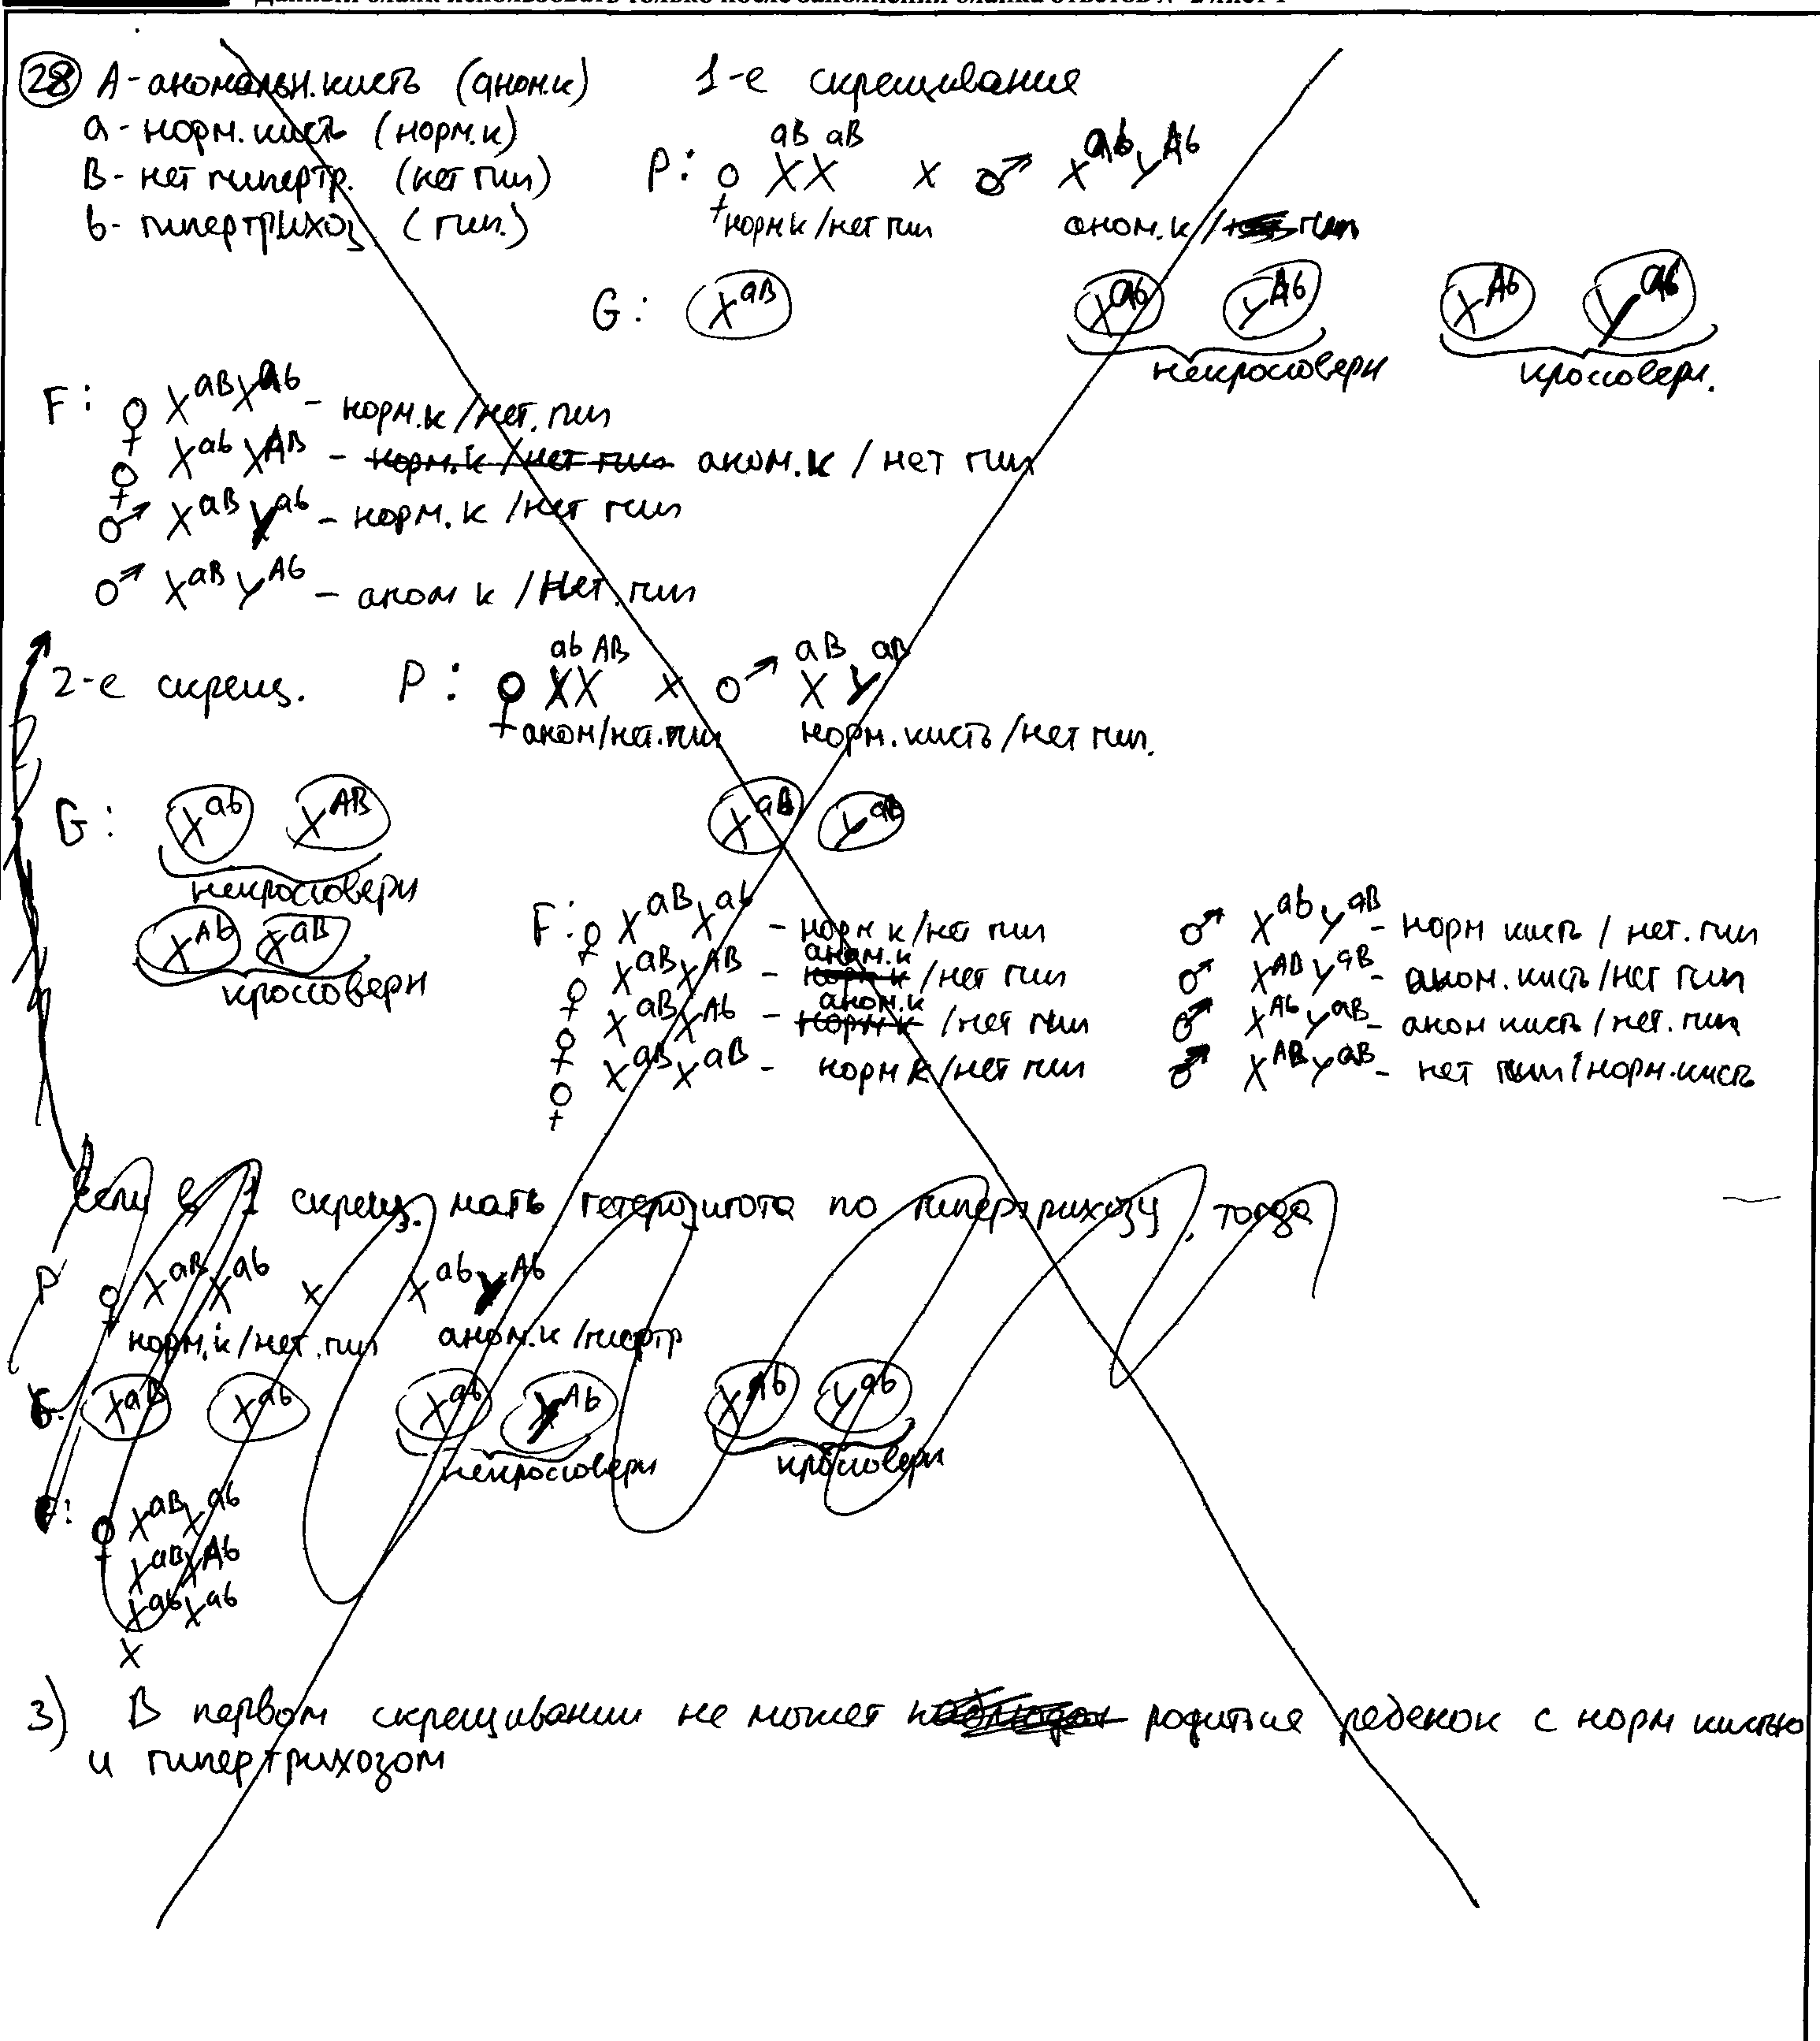 Данный бланк использовать только после заполнения бланка ответов № 2 лист 1
28 А - аномальн. кисть (аном.к) 1-е скрещивание
а - норм. кисть (норм.к)
В - нет гипертр. (нет гип)
b - гипертрихоз (гип.)
P: ♀ X^aB X^aB x ♂ X^ab Y^Ab
норм к / нет гип аном.к / гип
G: X^aB X^ab Y^Ab X^Ab Y^ab
некроссоверн кроссоверн.
F: ♀ X^aB X^ab - норм.к / нет. гип
♀ X^ab X^AB - норм.к / нет гип аном.к / нет гип
♂ X^aB Y^ab - норм. к / нет гип
♂ X^aB Y^Ab - аном к / нет. гип
2-е скрещ. P: ♀ X^ab X^AB x ♂ X^aB Y^aB
аном/нет.гип норм. кисть / нет гип.
G: X^ab X^AB X^aB Y^aB
некроссоверн
X^Ab X^aB
кроссоверн
F: ♀ X^aB X^ab - норм к / нет гип ♂ X^ab Y^aB - норм кисть / нет. гип
♀ X^aB X^AB - норм к аном.к / нет гип ♂ X^AB Y^aB - аном. кисть / нет гип
♀ X^aB X^Ab - норм к аном.к / нет гип ♂ X^Ab Y^aB - аном кисть / нет. гип
♀ X^aB X^aB - норм к / нет гип ♂ X^AB Y^aB - нет гип / норм. кисть
Если в 1 скрещ. мать гетерозигота по гипертрихозу, тогда
P ♀ X^aB X^ab x X^ab Y^Ab
норм.к / нет. гип аном.к / гипертр
G: X^aB X^ab X^ab Y^Ab X^Ab Y^ab
некроссоверн кроссоверн
F: ♀ X^aB X^ab
X^aB X^Ab
X^ab X^ab
X
3) В первом скрещивании не может родиться ребенок с норм кистью
и гипертрихозом